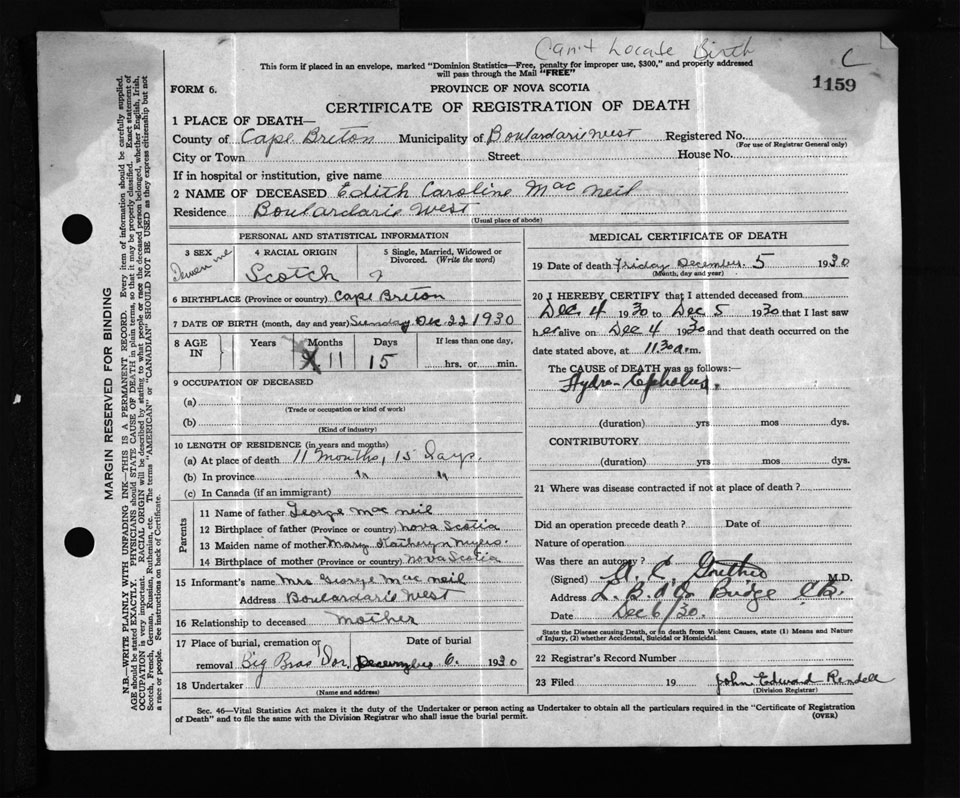 Can't Locate Birth
C
This form if placed in an envelope, marked "Dominion Statistics—Free, penalty for improper use, $300," and properly addressed
will pass through the Mail "FREE"
1159
FORM 6.
PROVINCE OF NOVA SCOTIA
CERTIFICATE OF REGISTRATION OF DEATH
1 PLACE OF DEATH—
County of Cape Breton Municipality of Boulardarie West Registered No.
(For use of Registrar General only)
City or Town Street House No.
If in hospital or institution, give name
2 NAME OF DECEASED Edith Caroline MacNeil
Residence Boulardarie West
(Usual place of abode)
PERSONAL AND STATISTICAL INFORMATION
3 SEX
4 RACIAL ORIGIN
Scotch
5 Single, Married, Widowed or
Divorced. (Write the word)
6 BIRTHPLACE (Province or country) Cape Breton
7 DATE OF BIRTH (month, day and year) Sunday Dec 22 1930
8 AGE
IN
Years
Months
11
Days
15
If less than one day,
hrs. or min.
9 OCCUPATION OF DECEASED
(a)
(Trade or occupation or kind of work)
(b)
(Kind of industry)
10 LENGTH OF RESIDENCE (in years and months)
(a) At place of death 11 Months, 15 Days.
(b) In province " "
(c) In Canada (if an immigrant)
Parents
11 Name of father George MacNeil
12 Birthplace of father (Province or country) Nova Scotia
13 Maiden name of mother Mary Katheryn Myers.
14 Birthplace of mother (Province or country) Nova Scotia
15 Informant's name Mrs George MacNeil
Address Boulardarie West
16 Relationship to deceased Mother
17 Place of burial, cremation or Date of burial
removal Big Bras Dor, December 6. 1930
18 Undertaker
(Name and address)
MEDICAL CERTIFICATE OF DEATH
19 Date of death Friday December 5 1930
(Month, day and year)
20 I HEREBY CERTIFY that I attended deceased from
Dec 4 1930 to Dec 5 1930 that I last saw
her alive on Dec 4 1930 and that death occurred on
date stated above, at 11.30 a.m.
The CAUSE of DEATH was as follows:—
Hydro-Cepholus.
(duration) yrs mos dys.
CONTRIBUTORY
(duration) yrs mos dys.
21 Where was disease contracted if not at place of death?
Did an operation precede death? Date of
Nature of operation
Was there an autopsy?
(Signed) M.D.
Address Bridge C.B.
Date Dec 6/30.
State the Disease causing Death, or in death from Violent Causes, state (1) Means and Nature
of Injury, (2) whether Accidental, Suicidal or Homicidal.
22 Registrar's Record Number
23 Filed 19 John Edward Rendell
(Division Registrar)
Sec. 46—Vital Statistics Act makes it the duty of the Undertaker or person acting as Undertaker to obtain all the particulars required in the "Certificate of Registration
of Death" and to file the same with the Division Registrar who shall issue the burial permit.
(OVER)
MARGIN RESERVED FOR BINDING
N.B.—WRITE PLAINLY WITH UNFADING INK—THIS IS A PERMANENT RECORD. Every item of information should be carefully supplied.
AGE should be stated EXACTLY. PHYSICIANS should STATE CAUSE OF DEATH in plain terms, so that it may be properly classified. Exact statement of
OCCUPATION is very important. RACIAL ORIGIN will be described by stating to what people or race the deceased person belonged, whether English, Irish,
Scotch, French, German, Russian, Ruthenian, etc. The terms "AMERICAN" or "CANADIAN" SHOULD NOT BE USED as they express citizenship but not
a race or people. See instructions on back of Certificate.